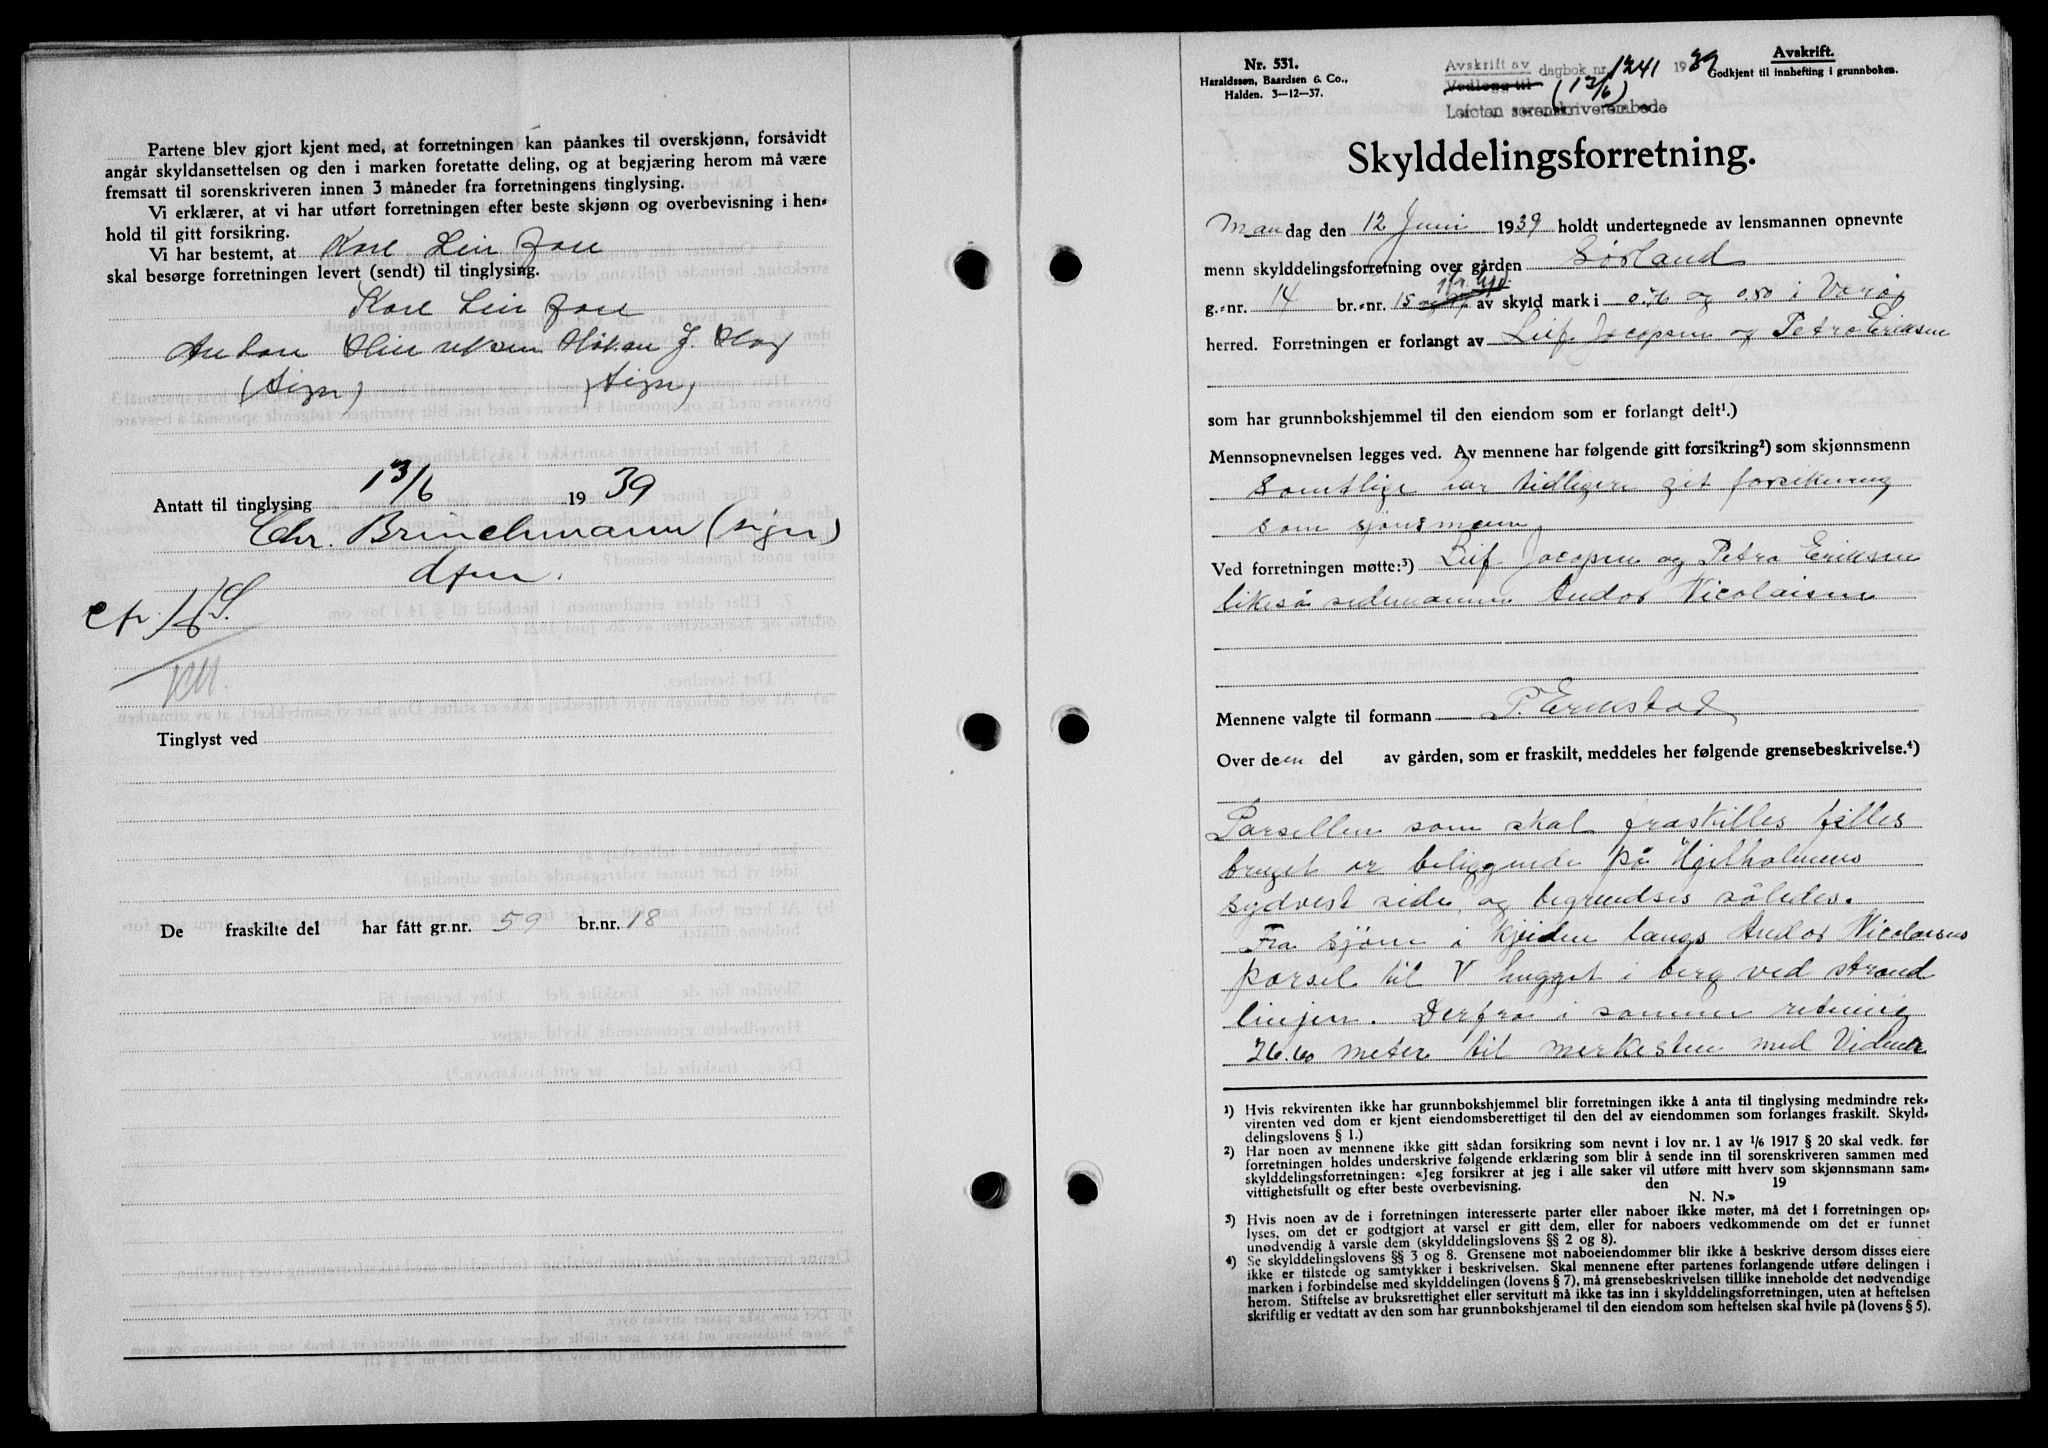 Partene blev gjort kjent med, at forretningen kan påankes til overskjønn, forsåvidt
angår skyldansettelsen og den i marken foretatte deling, og at begjæring herom må være
fremsatt til sorenskriveren innen 3 måneder fra forretningens tinglysing.
Vi erklærer, at vi har utført forretningen efter beste skjønn og overbevisning i hen-
hold til gitt forsikring.
Vi har bestemt, at Karl
skal besørge forretningen levert (sendt) til tinglysing.
Karl
Anton J.
(sign) (sign)
Antatt til tinglysing 13/6 1939
Chr. Brinchmann (sign)
dfm.
Tinglyst ved
De fraskilte del har fått gr.nr. 59 br.nr. 18
Nr. 531.
Haraldssøn, Baardsen & Co.,
Halden. 3-12-37.
Avskrift av
Vedlegg til dagbok nr. 1241 1939
(13/6)
Lofoten sorenskriverembede
Avskrift.
Godkjent til innhefting i grunnboken.
Skylddelingsforretning.
Mandag den 12 Juni 1939 holdt undertegnede av lensmannen opnevnte
menn skylddelingsforretning over gården Sørland
g.-nr. 14 br.-nr. 15 av skyld mark i og 0.80 i Værøy
herred. Forretningen er forlangt av Leif Jacopsen og Petra Eriksen
som har grunnbokshjemmel til den eiendom som er forlangt delt¹.)
Mennsopnevnelsen legges ved. Av mennene har følgende gitt forsikring²) som skjønnsmenn
Samtlige har tidligere git forsikring
som sjønsmenn,
Ved forretningen møtte:³) Leif Jacopsen og Petra Eriksen
likeså Andor Nicolaisen
Mennene valgte til formann P. Erikstad
Over den del av gården, som er fraskilt, meddeles her følgende grensebeskrivelse.⁴)
Parsellen som skal fraskilles felles
bruget er beliggende på Hjelholmens
sydvest side, og begrændses således.
Fra sjøen i Kjeiden langs Andor Nicolaisens
parsel til V hugget i berg ved strand
linjen. Derfra i samme retning
26.60 meter til merkesten med Vidner
¹) Hvis rekvirenten ikke har grunnbokshjemmel blir forretningen ikke å anta til tinglysing medmindre rek-
virenten ved dom er kjent eiendomsberettiget til den del av eiendommen som forlanges fraskilt. (Skyld-
delingslovens § 1.)
²) Har noen av mennene ikke gitt sådan forsikring som nevnt i lov nr. 1 av 1/6 1917 § 20 skal vedk. før
forretningen holdes underskrive følgende erklæring som blir å sende inn til sorenskriveren sammen med
skylddelingsforretningen: «Jeg forsikrer at jeg i alle saker vil utføre mitt hverv som skjønnsmann sam-
vittighetsfullt og efter beste overbevisning. den 19
N. N.»
³) Hvis noen av de i forretningen interesserte parter eller naboer ikke møter, må det i forretningen op-
lyses, om det er godtgjort at varsel er gitt dem, eller for naboers vedkommende om det er funnet
unødvendig å varsle dem (skylddelingslovens §§ 2 og 8).
⁴) Se skylddelingslovens §§ 3 og 8. Grensene mot naboeiendommer blir ikke å beskrive dersom disses eiere
ikke er tilstede og samtykker i beskrivelsen. Skal mennene efter partenes forlangende utføre delingen i
marken i forbindelse med skylddelingen (lovens § 7), må grensebeskrivelsen tillike inneholde det nødvendige
herom. Stiftelse av bruksrettighet eller servitutt må ikke tas inn i skylddelingsforretningen, uten at heftelsen
skriftlig er vedtatt av den som har grunnbokshjemmel til den eiendom som heftelsen skal hvile på (lovens § 5).